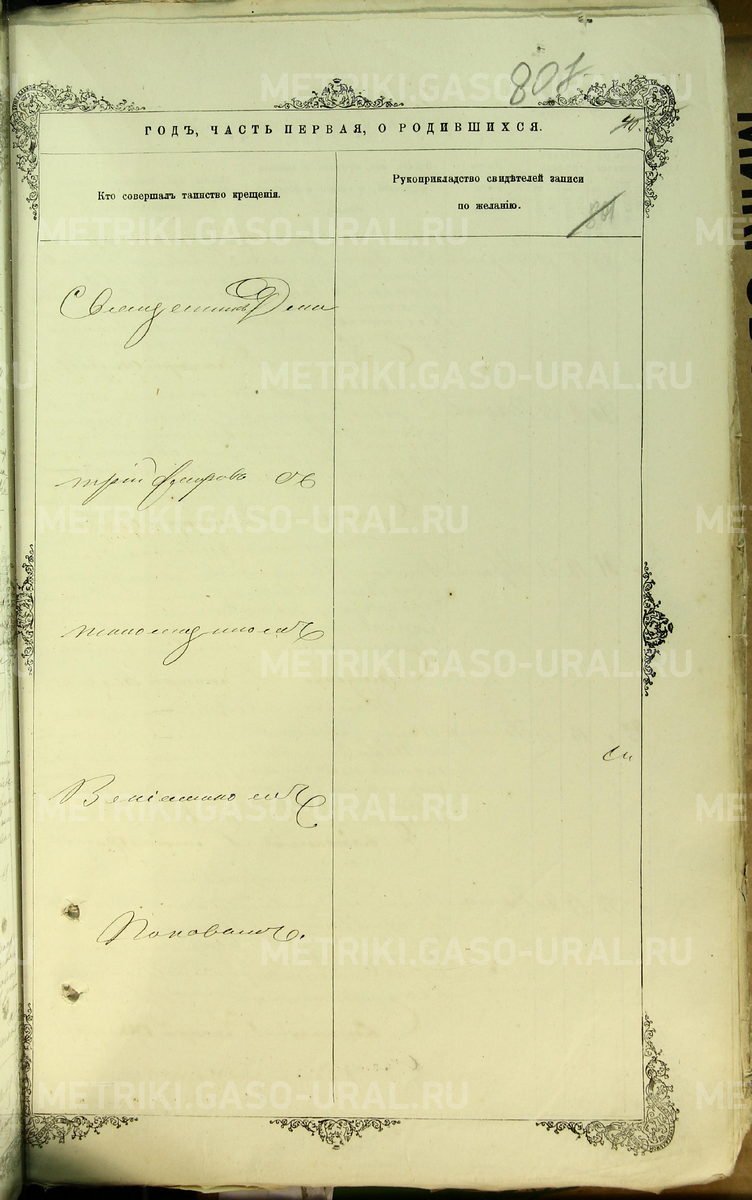 807.
ГОДЪ, ЧАСТЬ ПЕРВАЯ, О РОДИВШИХСЯ.
Кто совершалъ таинство крещенія.
Рукоприкладство свидѣтелей записи
по желанію.
Священникъ Дми
трій съ
псаломщикомъ
Веніаминомъ
Поповымъ.
METRIKI.GASO-URAL.RU